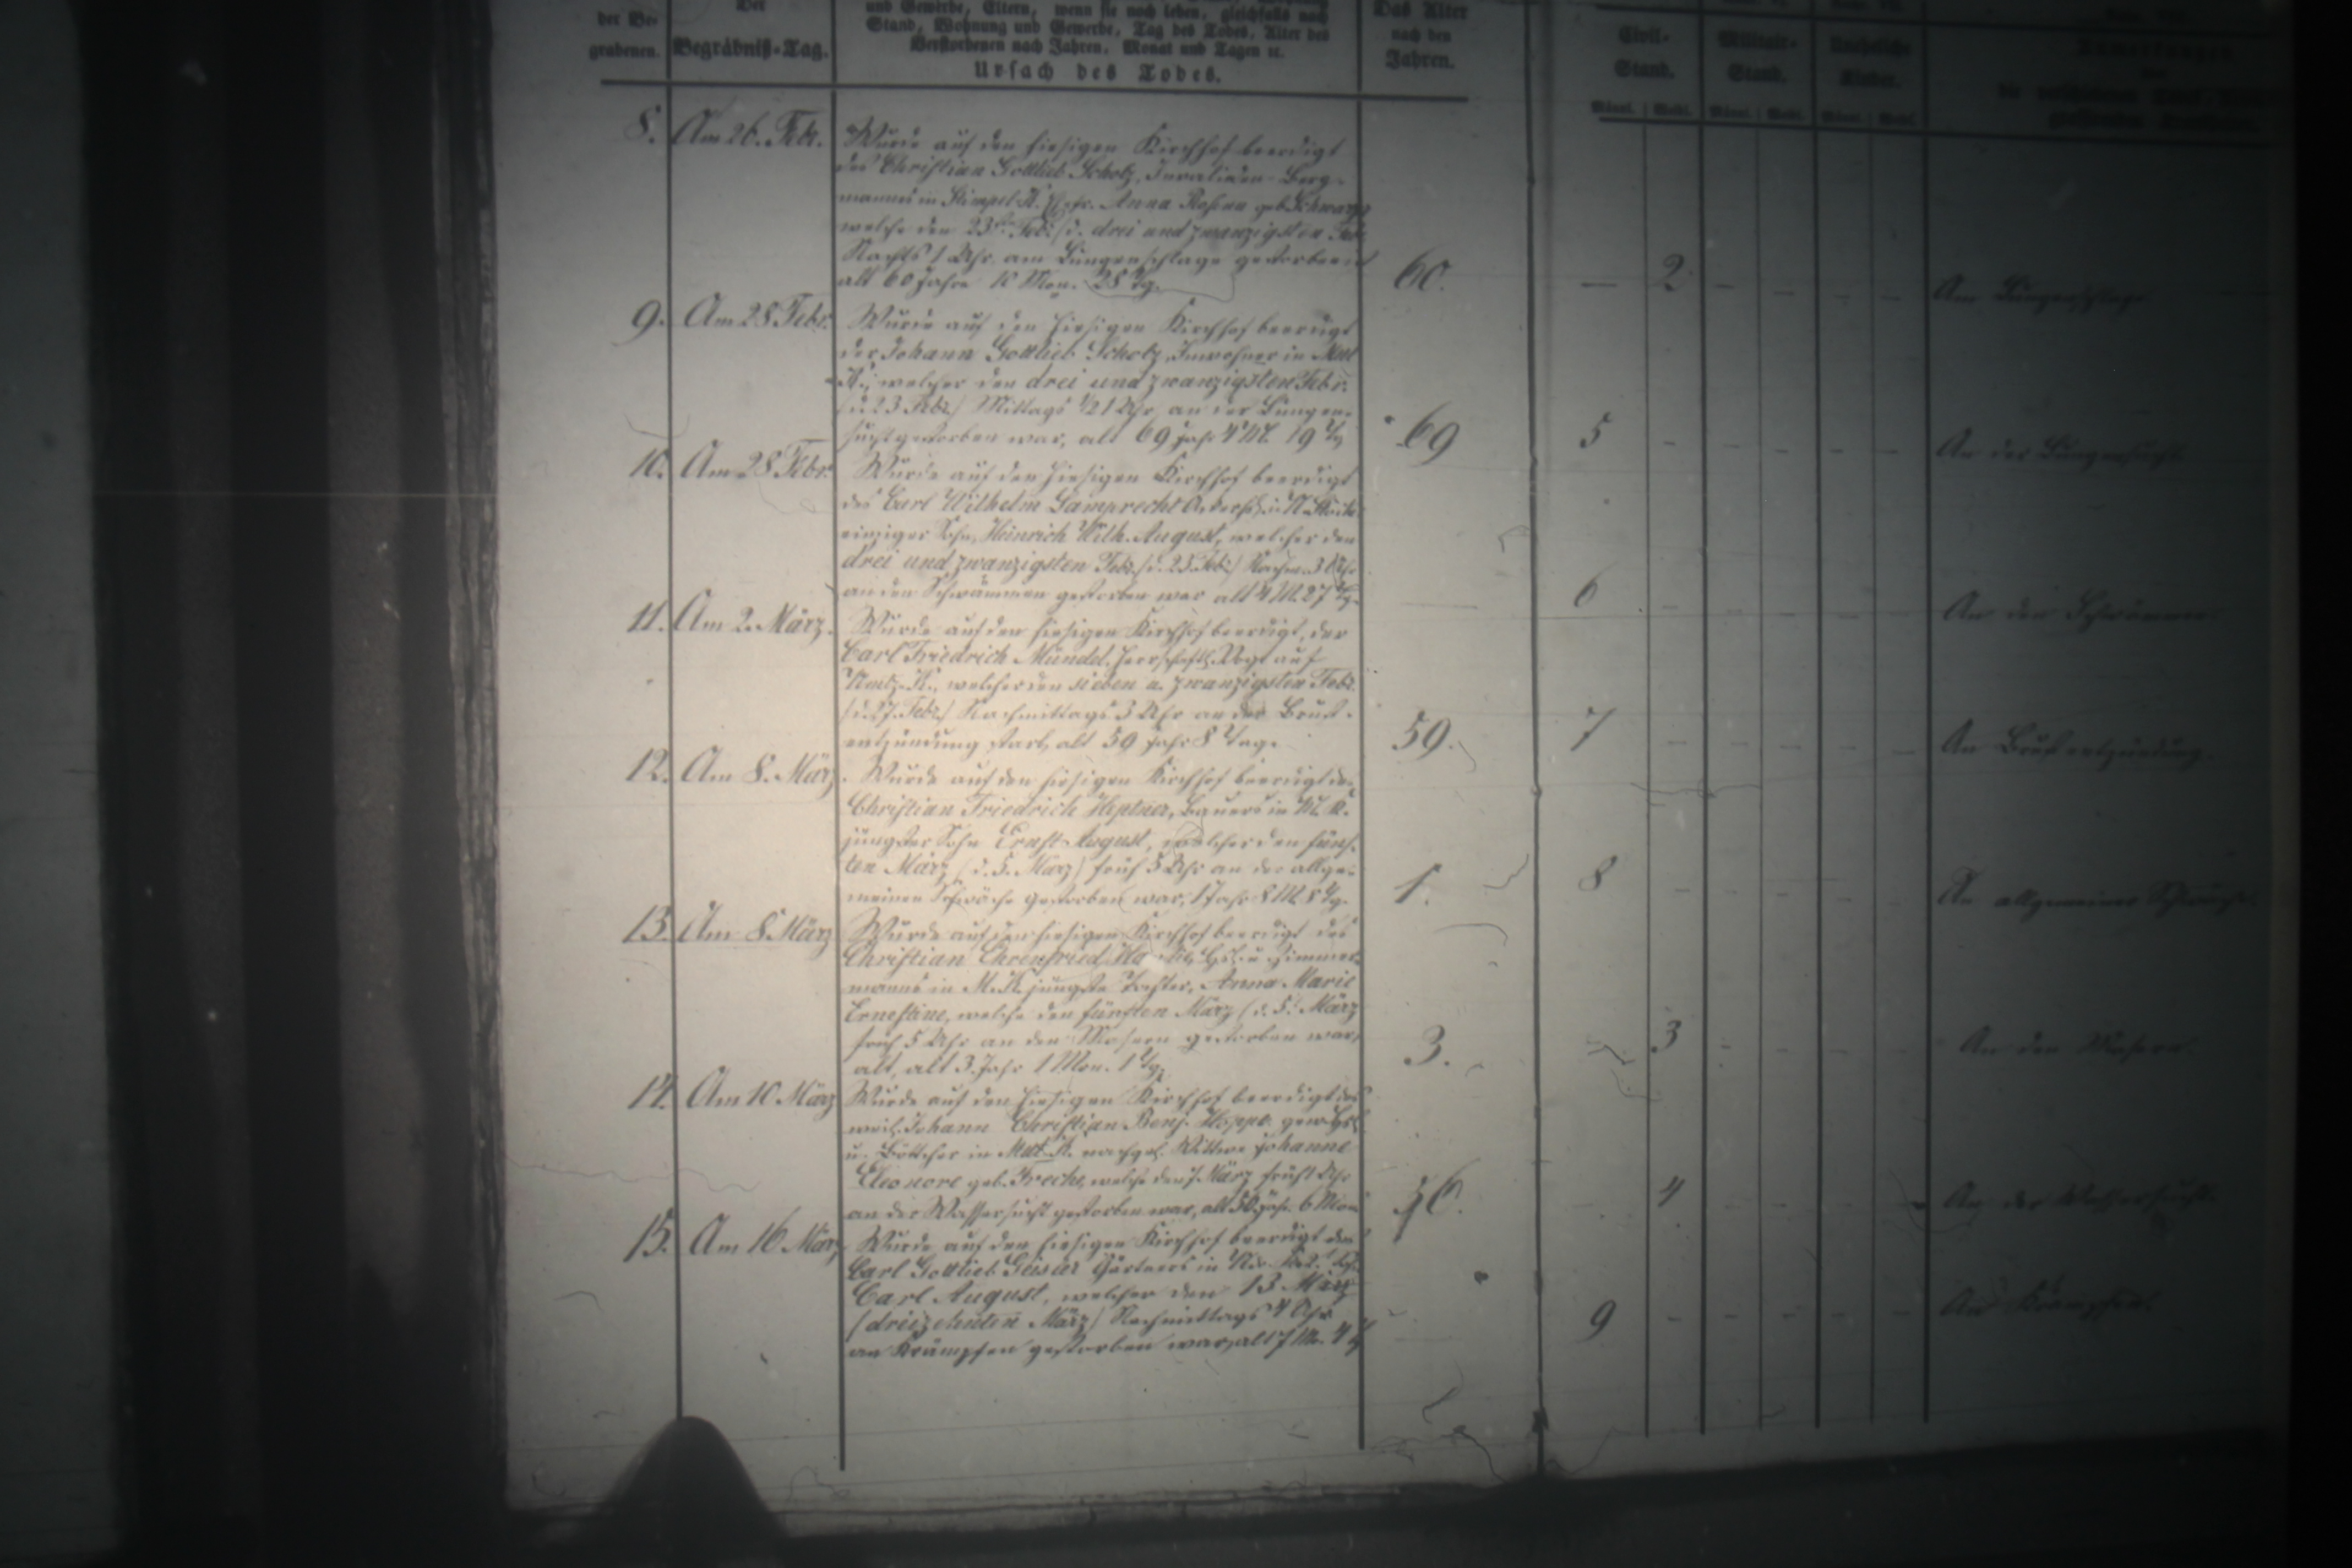 der Be-
grabenen.
Der
Begräbniß-Tag.
und Gewerbe, Eltern, wenn sie noch leben, gleichfalls nach
Stand, Wohnung und Gewerbe, Tag des Todes, Alter des
Verstorbenen nach Jahren, Monat und Tagen u.
Ursach des Todes.
Das Alter
nach den
Jahren.
Civil-
Stand.
Militair-
Stand.
Uneheliche
Kinder.
8. Am 26. Febr. Wurde auf den hiesigen Kirchhof beerdigt
des Christian Gottlieb Scholz, Invaliden-Berg-
manns in Ehefr. Anna Rosina geb. Schwarz
welche den 23. Febr. (d. drei und zwanzigsten Febr.
Nachts 1 Uhr am Lungenschlage gestorben
alt 60 Jahre 10 Mon. 28 Tg. 60. — 2 - - - - Am Lungenschlage
9. Am 28 Febr. Wurde auf den hiesigen Kirchhof beerdigt
der Johann Gottlieb Scholz, Inwohner in
K., welcher den drei und zwanzigsten Febr.
(d. 23 Febr.) Mittags ½1 Uhr an der Lungen-
sucht gestorben war, alt 69 Jahr 4 M. 19 Tg 69 5 - - - - - An der Lungensucht
10. Am 28 Febr. Wurde auf den hiesigen Kirchhof beerdigt
des Carl Wilhelm Gamprecht
einziger Sohn, Heinrich Wilh. August, welcher den
drei und zwanzigsten Febr. (d. 23. Febr.) Nachm. 3 Uhr
an den Schwämmen gestorben war alt 4 M. 27 Tg. — 6 - - - - - An den Schwämmen.
11. Am 2. März. Wurde auf den hiesigen Kirchhof beerdigt, der
Carl Friedrich Mündel, herrschaftl. Vogt auf
K., welcher den sieben u. zwanzigsten Febr.
(d. 27. Febr.) Nachmittags 3 Uhr an der Brust-
entzündung starb, alt 59 Jahr 8 Tage 59. 7 - - - - - An Brustentzündung.
12. Am 8. März. Wurde auf den hiesigen Kirchhof beerdigt des
Christian Friedrich Heptner, Bauers in M. K.
jüngster Sohn Ernst August, welcher den fünf-
ten März (d. 5. März) früh 5 Uhr an der allge-
meinen Schwäche gestorben war, 1 Jahr 8 M. 8 Tg. 1. 8 - - - - - An allgemeiner Schwäche.
13. Am 8. März Wurde auf den hiesigen Kirchhof beerdigt des
Christian Ehrenfried u. Zimmer-
manns in M. K. jüngste Tochter, Anna Marie
Ernestine, welche den fünften März (d. 5. März
früh 5 Uhr an den Masern gestorben war,
alt, alt 3 Jahr 1 Mon. 1 Tg. 3. - 3 - - - - An den Masern.
14. Am 10 März Wurde auf den hiesigen Kirchhof beerdigt des
weil. Johann Christian Benj. Hoppe
u. Böttcher in K. nachgel. Wittwe Johanne
Eleonore geb. welche den 7. März früh 1 Uhr
an der Wassersucht gestorben war, alt Jahr 6 Mon. - 4 - - - - An der Wassersucht.
15. Am 16 März Wurde auf den hiesigen Kirchhof beerdigt des
Carl Gottlieb Geisler Gärtners in
Carl August, welcher den 13 März
(dreizehnten März) Nachmittags 4 Uhr
an Krämpfen gestorben war, alt 7 Mo. 4 Tg — 9 - - - - - An Krämpfen.